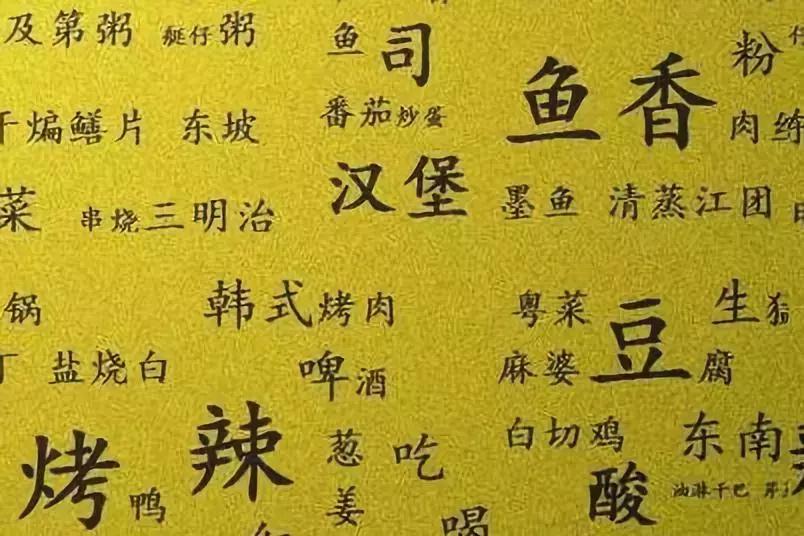 及第粥 艇仔粥 鱼 司 鱼香 粉
干煸鳝片 东坡 番茄炒蛋 肉
菜 串烧三明治 汉堡 墨鱼 清蒸江团
锅 韩式烤肉 粤菜 生
盐烧白 啤酒 麻婆豆腐
烤鸭 辣 葱 吃 白切鸡 东南
姜 喝 酸 油淋干巴